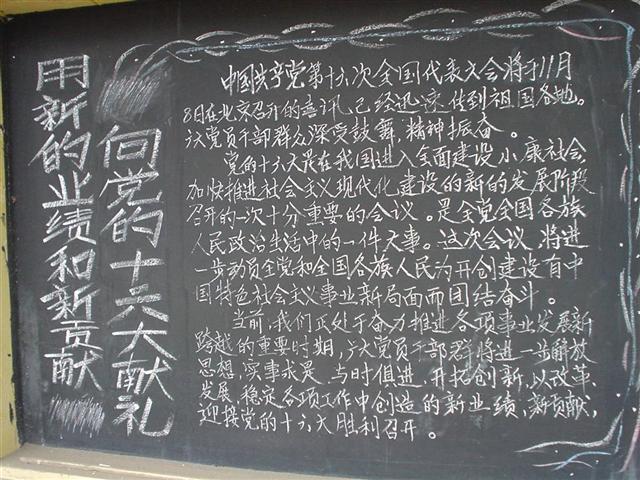 用新的业绩和新贡献
向党的十六大献礼
中国共产党第十六次全国代表大会将于11月
8日在北京召开的喜讯已经迅速传到祖国各地。
广大党员干部群众深受鼓舞,精神振奋。
党的十六大是在我国进入全面建设小康社会,
加快推进社会主义现代化建设的新的发展阶段
召开的一次十分重要的会议。是全党全国各族
人民政治生活中的一件大事。这次会议,将进
一步动员全党和全国各族人民为开创建设有中
国特色社会主义事业新局面而团结奋斗。
当前,我们正处于奋力推进各项事业发展新
跨越的重要时期,广大党员干部群将进一步解放
思想,实事求是,与时俱进,开拓创新,以改革、
发展、稳定各项工作中创造的新业绩,新贡献,
迎接党的十六大胜利召开。